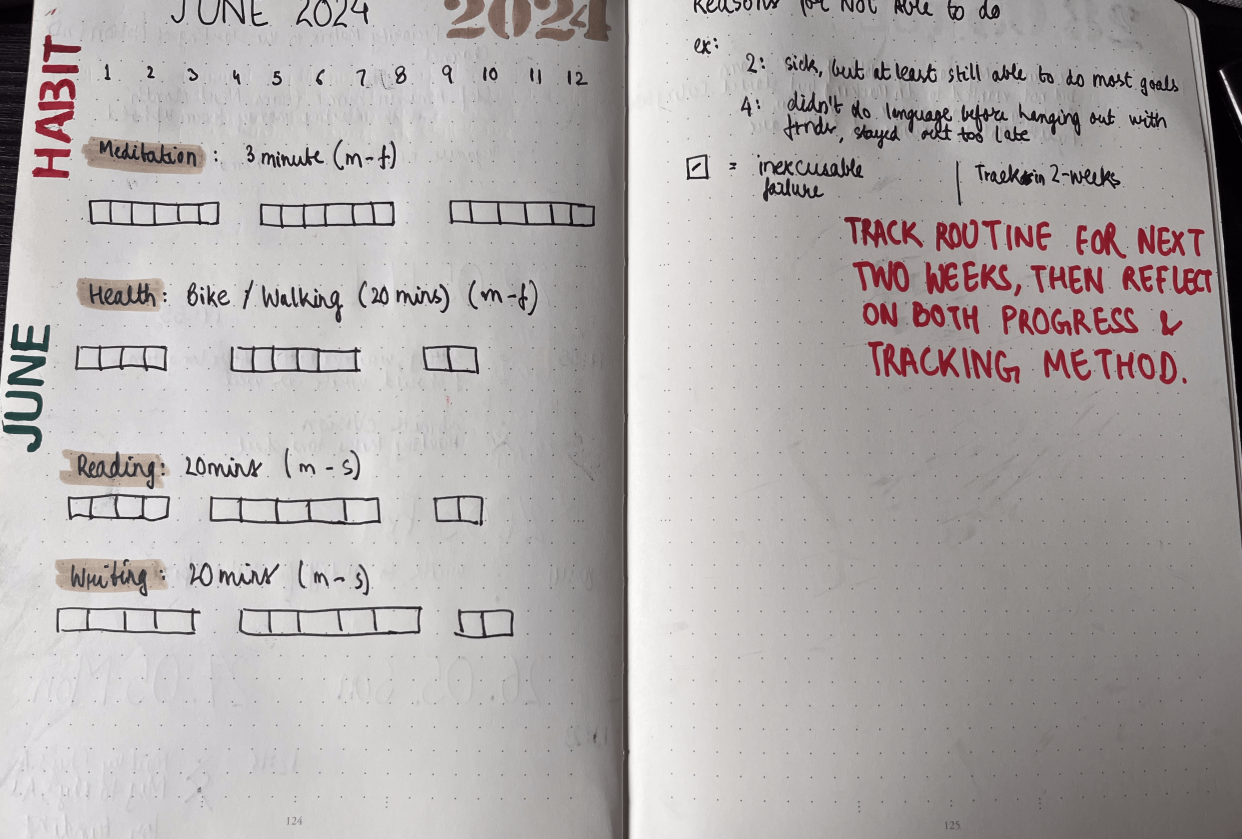 JUNE 2024 2024
HABIT
JUNE
1 2 3 4 5 6 7 8 9 10 11 12
Meditation: 3 minute (m-f)
Health: Bike / Walking (20 mins) (m-f)
Reading: 20mins (m-s)
Writing: 20mins (m-s)
124
Reasons for Not Able to do
ex:
2: sick, but at least still able to do most goals
4: didn't do language before hanging out with
stayed out too late
= inexcusable
failure
Track in 2-weeks
TRACK ROUTINE FOR NEXT
TWO WEEKS, THEN REFLECT
ON BOTH PROGRESS &
TRACKING METHOD.
125